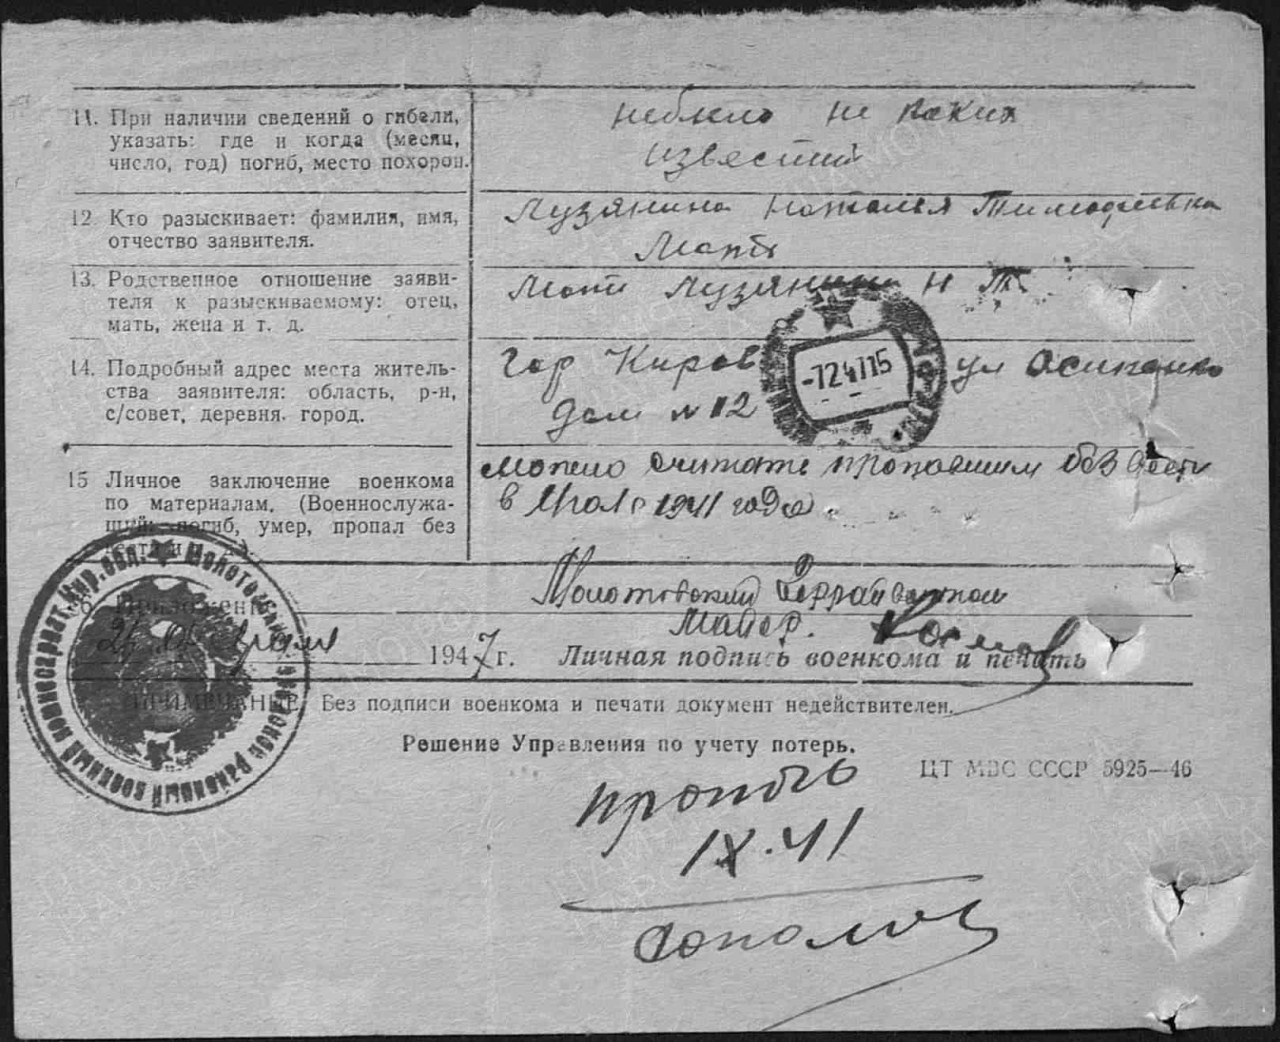 11. При наличии сведений о гибели,
указать: где и когда (месяц,
число, год) погиб, место похорон.
небыло не каких
известий
12 Кто разыскивает: фамилия, имя,
отчество заявителя.
Лузянина Наталья Тимофеевна
Мать
13. Родственное отношение заяви-
теля к разыскиваемому: отец,
мать, жена и т. д.
Мать Лузянина Н Т.
14. Подробный адрес места житель-
ства заявителя: область, р-н,
с/совет, деревня. город.
гор Киров ул Осипенко
дом № 12
-7.2.47 15
15 Личное заключение военкома
по материалам. (Военнослужа-
щий: погиб, умер, пропал без
можно считать пропавшим без вести
в 1941 года.
Молотовский Райвоенком
Майор.
1947 г. Личная подпись военкома и печать
районный военный комиссариат Кир. обл.
ПРИМЕЧАНИЕ. Без подписи военкома и печати документ недействителен.
Решение Управления по учету потерь.
ЦТ МВС СССР 5925—46
IX.41
ПАМЯТЬ НАРОДА